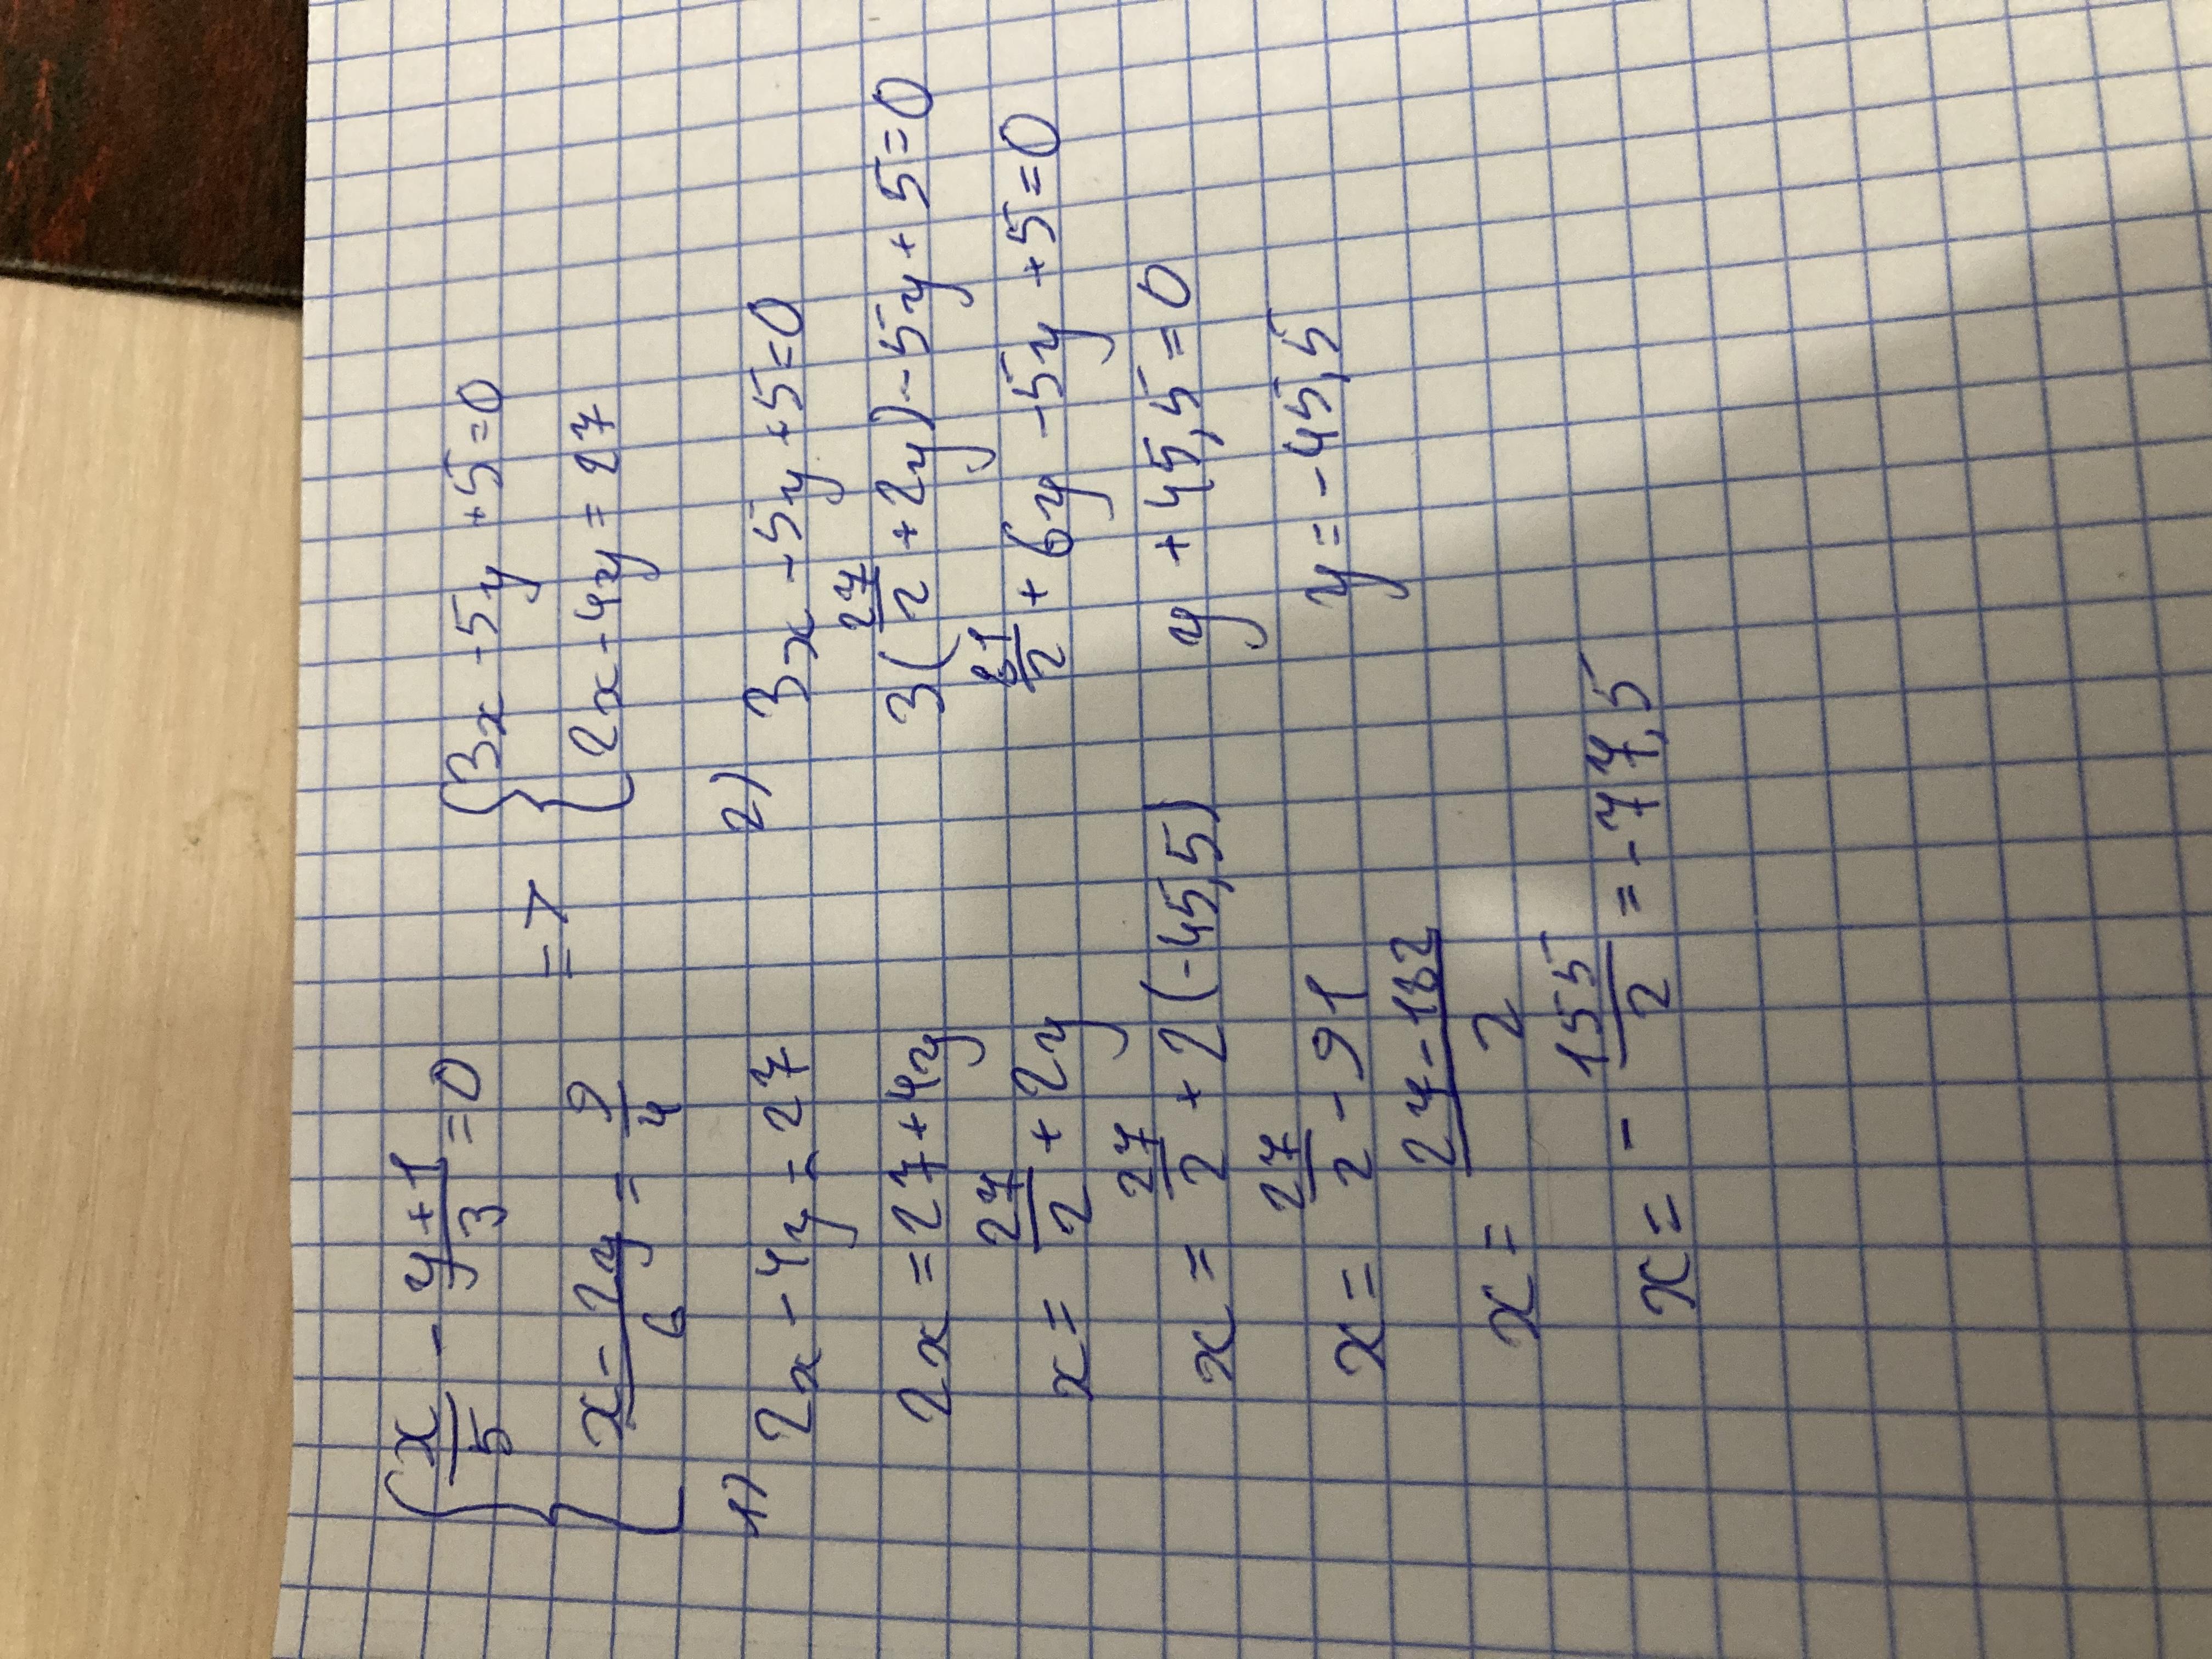 { x/5 - (y+1)/3 = 0 => { 3x - 5y + 5 = 0
(x - 2y)/6 = 9/4 2x - 4y = 27
1) 2x - 4y = 27
2x = 27 + 4y
x = 27/2 + 2y
x = 27/2 + 2(-45,5)
x = 27/2 - 91
x = (27 - 182)/2
x = - 155/2 = -77,5
2) 3x - 5y + 5 = 0
3(27/2 + 2y) - 5y + 5 = 0
81/2 + 6y - 5y + 5 = 0
y + 45,5 = 0
y = -45,5